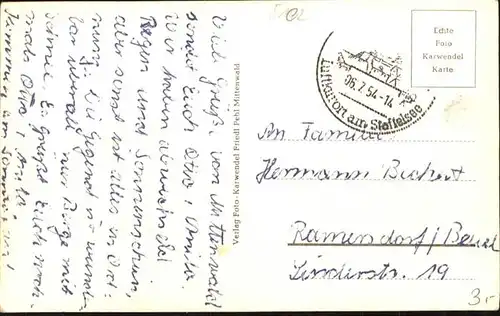 Viele Grüße von Mittenwald
sendet Euch Otto u. Anita.
Wir haben abwechselnd
Regen und Sonnenschein,
aber sonst ist alles in Ord-
nung. Die Gegend ist wunder-
bar überall nur Berge mit
Schnee. Es grüßt Euch noch-
mals Otto u. Anita.
Verlag Foto-Karwendel Friedl Pehl Mittenwald
Echte
Foto
Karwendel
Karte
06.7.54-14
Luftkurort am Staffelsee
An Familie
Hermann Bichert
Ramersdorf/Beuel
Lindenstr. 19
3,-